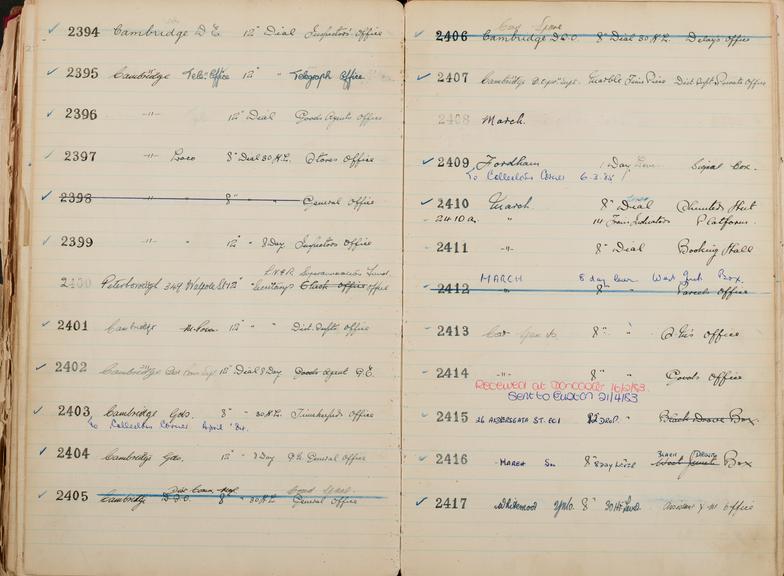 2394 Cambridge D.E. 12" Dial Inspectors Office
2395 Cambridge Tele: Office 12" " Telegraph Office.
2396 -"- 12" Dial Goods Agents Office
2397 -"- Loco 8" Dial 30 H.L. Stores Office
2398 " " 8" " General Office
2399 -"- " 12" " 8 Day Inspectors Office
L.N.E.R. Superannuation Fund.
2400 Peterborough 12" " Secretary's Office
2401 Cambridge 12" " " Dist. Supts Office
2402 Cambridge 12" Dial 8 Day Goods Agent
2403 Cambridge Gds. 8" " 30 H.L. Timekeepers Office
To Collectors Corner April '84.
2404 Cambridge Gds. 12" " 8 Day General Office
Good Spare
2405 Cambridge 8" " 30 H.L. General Office
Spare
2406 Cambridge D.S.O. 8" Dial 30 H.L. Delays Office
2407 Cambridge Marble Time Piece Dist Supt Private Office
2408 March.
2409 Fordham 1 Day Signal Box.
To Collectors Corner 6.3.85
2410 March 8" Dial Shunters Hut
2410 a. " Platform.
2411 -"- 8" Dial Booking Hall
MARCH 8 day West Junc Box.
2412 " 8" " Parcels Office
2413 8" " Office
2414 -"- 8" " Goods Office
Received at Doncaster 16/2/83.
Sent to Euston 21/4/83
2415 26 ALDERSGATE ST. EC1 12" DROP. Black Drove Box.
BLACK DROVE
2416 MARCH 8" 8 day West Junctn Box
2417 Whitemoor 8" Assistant Y.M. Office